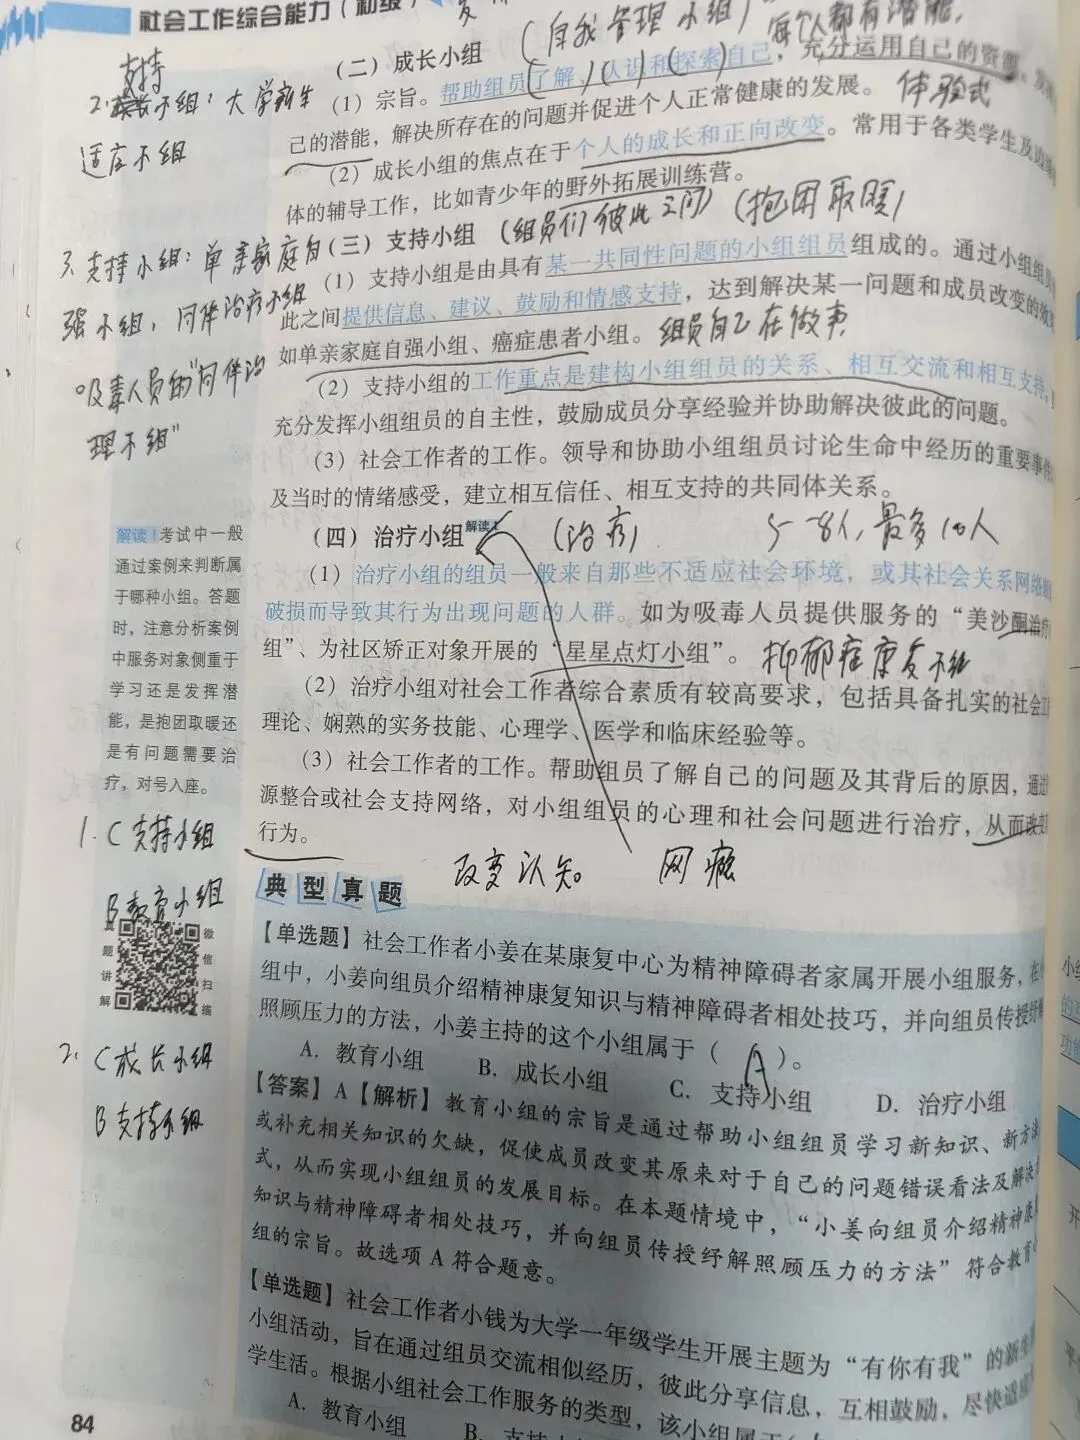 社会工作综合能力（初级）
（自我管理小组）
每个人都有潜能，
（二）成长小组
（1）宗旨。帮助组员了解、认识和探索自己，充分运用自己的资源、
己的潜能，解决所存在的问题并促进个人正常健康的发展。
体验式
（2）成长小组的焦点在于个人的成长和正向改变。常用于各类学生及边缘
体的辅导工作，比如青少年的野外拓展训练营。
支持
2.成长小组：大学新生
适应小组
（三）支持小组
（组员们彼此之间）（抱团取暖）
（1）支持小组是由具有某一共同性问题的小组组员组成的。通过小组组员
此之间提供信息、建议、鼓励和情感支持，达到解决某一问题和成员改变的效
如单亲家庭自强小组、癌症患者小组。
组员自己在做事
（2）支持小组的工作重点是建构小组组员的关系、相互交流和相互支持。
充分发挥小组组员的自主性，鼓励成员分享经验并协助解决彼此的问题。
（3）社会工作者的工作。领导和协助小组组员讨论生命中经历的重要事件
及当时的情绪感受，建立相互信任、相互支持的共同体关系。
3.支持小组：单亲家庭自
强小组，同伴治疗小组
吸毒人员的“同伴治
理小组”
（四）治疗小组解读1
（治疗）
5-8人，最多10人
（1）治疗小组的组员一般来自那些不适应社会环境，或其社会关系网络
破损而导致其行为出现问题的人群。如为吸毒人员提供服务的“美沙酮治疗
组”、为社区矫正对象开展的“星星点灯小组”。
抑郁症康复小组
（2）治疗小组对社会工作者综合素质有较高要求，包括具备扎实的社会工
理论、娴熟的实务技能、心理学、医学和临床经验等。
（3）社会工作者的工作。帮助组员了解自己的问题及其背后的原因，通过
源整合或社会支持网络，对小组组员的心理和社会问题进行治疗，从而改变
行为。
改变认知
网瘾
解读1考试中一般
通过案例来判断属
于哪种小组。答题
时，注意分析案例
中服务对象侧重于
学习还是发挥潜
能，是抱团取暖还
是有问题需要治
疗，对号入座。
1.C支持小组
B教育小组
真题讲解
微信扫描
2.C成长小组
B支持小组
典型真题
【单选题】社会工作者小姜在某康复中心为精神障碍者家属开展小组服务，在
组中，小姜向组员介绍精神康复知识与精神障碍者相处技巧，并向组员传授纾解
照顾压力的方法，小姜主持的这个小组属于（A）。
A. 教育小组 B. 成长小组 C. 支持小组 D. 治疗小组
【答案】A【解析】教育小组的宗旨是通过帮助小组组员学习新知识、新方法
或补充相关知识的欠缺，促使成员改变其原来对于自己的问题错误看法及解决
式，从而实现小组组员的发展目标。在本题情境中，“小姜向组员介绍精神康
知识与精神障碍者相处技巧，并向组员传授纾解照顾压力的方法”符合教育
组的宗旨。故选项A符合题意。
【单选题】社会工作者小钱为大学一年级学生开展主题为“有你有我”的新生
小组活动，旨在通过组员交流相似经历，彼此分享信息，互相鼓励，尽快适应
学生活。根据小组社会工作服务的类型，该小组属于（
A. 教育小组 B. 支持
84